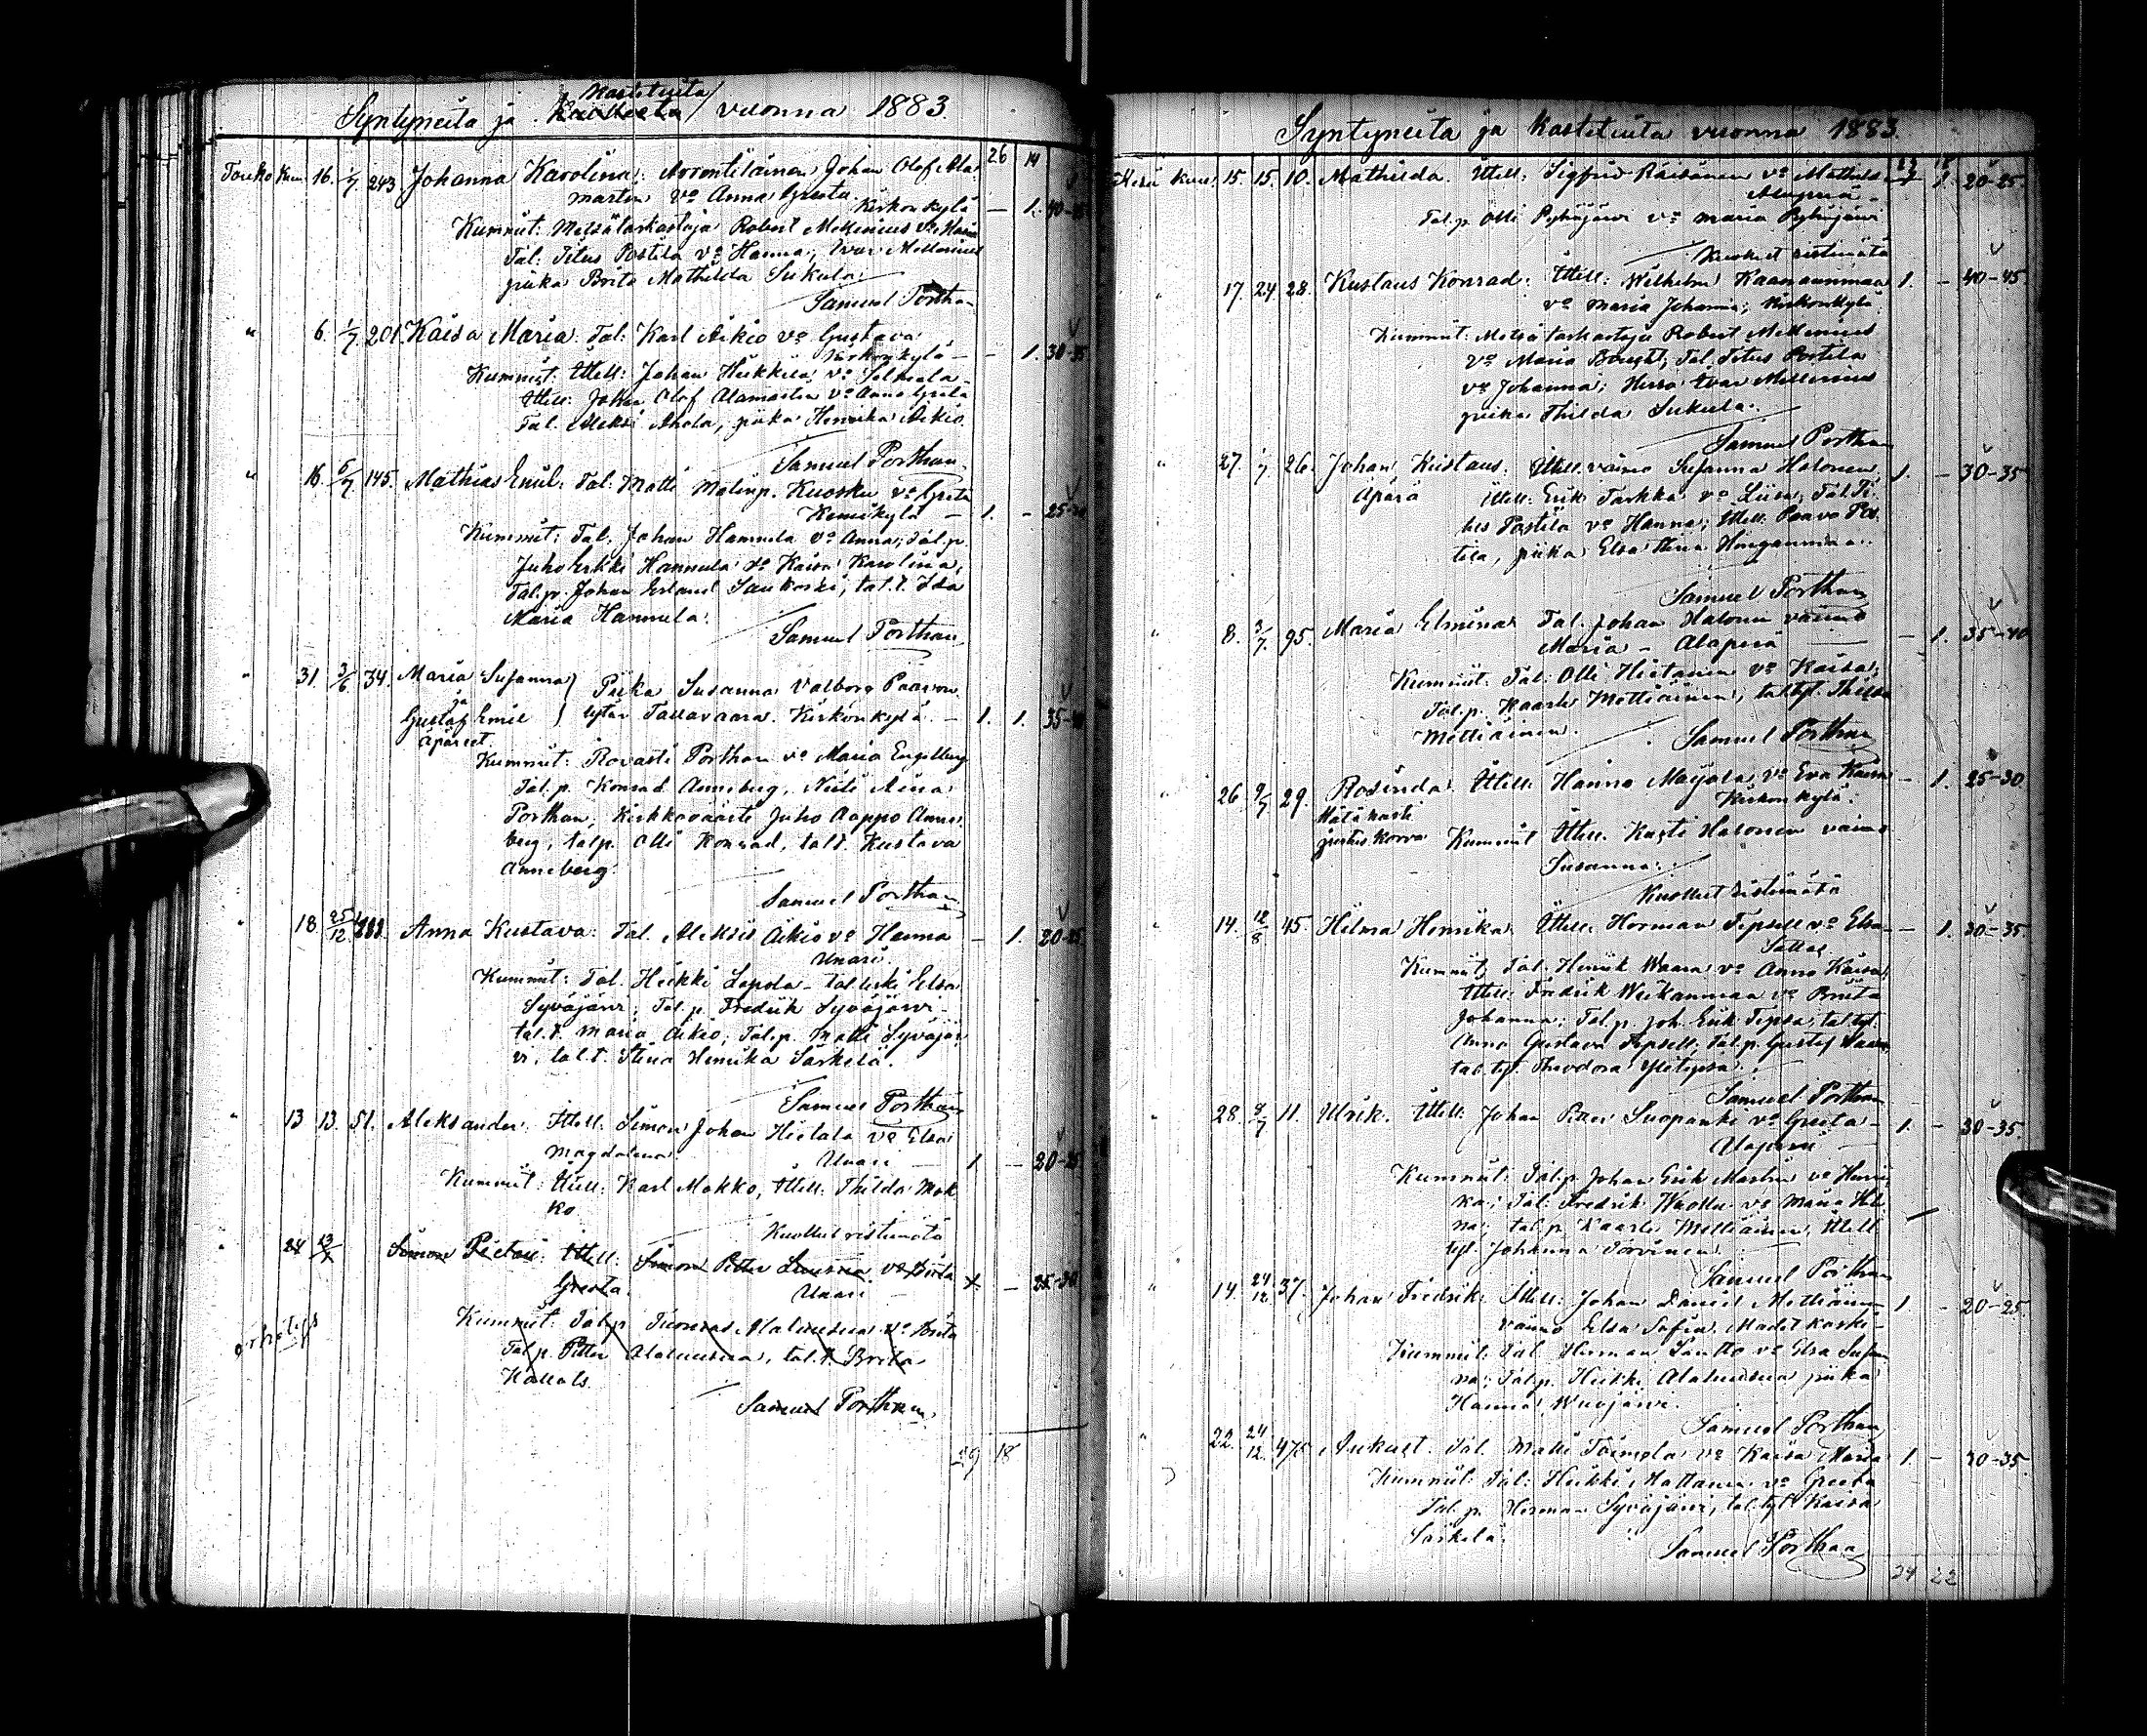 Kastetuita
Syntyneitä ja vuonna 1883.
26 14
Touko kuu 16. 1/7 243 Johanna Karolina: Johan Olof Ala
martin vo Anna Greeta
Kirkonkylä — 1. 40-45
Kummit: Metsätarkastaja Robert Mellenius vo Maria
Tal: Titus Postila vo Hanna; Ivar Mellenius
piika Brita Mathilda Sukula
Samuel Porthan
" 6. 1/7 201 Kaisa Maria. Tal: Karl Aikio vo Gustava
Kirkonkylä — — 1. 30-35
Kummit: Ittell: Johan Heikkilä vo
Ittell: Johan Olof Alamartin vo Anna Greta
Tal. Aleksi Ahola, piika Henrika Aikio.
Samuel Porthan
" 16. 5/7 145. Mathias Emil: Tal: Matti Matinp. Kuosku vo Greta
Kemikylä — 1. - 25-30
Kummit: Tal. Johan Hannula vo Anna; Tal.p.
Juho Erkki Hannula vo Kaisa Karolina,
Tal.p. Johan Erland Saukoski; tal.t. Ida
Maria Hannula.
Samuel Porthan
" 31. 3/6 34. Maria Susanna Piika Susanna Valborg Paavon
ja
Gustaf Emil tytär Tallavaara. Kirkonkylä. — 1. 1. 35-40
äpäreet.
Kummit: Rovasti Porthan vo Maria Engelberg
Tal.p. Konrad Anneberg, Neiti Aina
Porthan, Kirkkoväärti Juho Aappo Anne-
berg, tal.p. Olli Konrad, tal.t. Kustava
Anneberg.
Samuel Porthan
" 18 25/12 Anna Kustava: Tal. Aleksis Aikio vo Hanna — 1. 20-25
Unari.
Kummit: Tal. Heikki Lapola - tal. leski Elsa
Syväjärvi; Tal.p. Fredrik Syväjärvi -
tal.t. Maria Aikio; Tal.p. Matti Syväjär-
vi, tal.t. Stina Henrika Särkelä.
Samuel Porthan
" 13 13. 51. Aleksander: Ittell. Simon Johan Hietala vo Elsa
Magdalena. Unari — 1 — 20-25
Kummit: Ittell: Karl Mokko, Ittell: Thilda Mok
ko
Kuollut ristimätä
24 Simon Pietari: Ittell: Simon Petter vo Brita
Greeta. Unari — 25-30
Kummit: Tal.p. Tuomas Alaluusua vo Brita
Tal.p. Petter Alaluusua, tal.t. Brita
Samuel Porthan
29 18
Syntyneitä ja Kastetuita vuonna 1883.
Kesä kuu. 15. 15. 10. Mathilda. Ittell: Sigfrid Räisänen vo Mathilda — 1. 20-25.
Alaperä -
Tal.p. Olli Pyhäjärvi vo Maria Pyhäjärvi
Kuollut ristimätä
" 17. 24. 28. Kustaus Konrad: Ittell: Wilhelm Kaanaanmaa 1. - 40-45
vo Maria Johanna; Kirkonkylä.
Kummit: Metsätarkastaja Robert Mellenius
vo Maria; Tal. Titus Postila
vo Johanna; Herra Ivar Mellenius
piika Thilda Sukula.
Samuel Porthan
" 27. 1/7 26. Johan Kustaus. Ittell. vaimo Susanna Halonen, 1. - 30-35
Äpärä Ittell: Erik Tarkka vo Liisa, Tal. Ti-
tus Postila vo Hanna; Ittell. Paavo Pos-
tila, piika Elsa Stina Hanganmaa.
Samuel Porthan
" 8. 3/7. 95. Maria Elmina Tal. Johan Halonen vaimo
Maria - Alaperä — 1. 35-40
Kummit: Tal: Olli Hietanen vo Kaisa;
Tal.p. Kaarle Mettiäinen; tal.tyt. Thilda
Mettiäinen.
Samuel Porthan
" 26 9/7 29. Rosinda. Ittell. Hanno Marjala vo Eva Kaisa — 1. 25-30
Hätä kaste Kirkonkylä.
Korva Kummit Ittell. Kusti Halonen vaimo
Susanna.
Kuollut ristimätä
" 14. 12/8 45. Hilma Henrika. Ittell. Herman Tepsell vo Elsa — 1. 30-35.
Sattas
Kummit: Tal. Henrik Waara vo Anna Kaisa
Ittell: Fredrik Weikanmaa vo Brita
Johanna; Tal.p. Joh. Erik Tepsa; tal.tyt.
Anna Gustava Tepsell; tal.p. Gustaf Waara,
tal.tyt. Theodora Ylitepsa.
Samuel Porthan
" 28. 8/7 11. Ulrik. Ittell. Johan Suopanki vo Greeta — 1. - 30-35.
Alaperä —
Kummit: Tal.p. Johan Erik Martin vo Henri-
ka; Tal: Fredrik vo Maria
tal.p. Kaarle Mettiäinen, Ittell.
tyt. Johanna Törvinen
Samuel Porthan
" 14. 24/12 37. Johan Fredrik: Ittell: Johan Daniel Mettiäinen 1. - 20-25.
vaimo Elsa Sofia. Madetkoski -
Kummit: Tal. Herman vo Elsa Susan-
na; Tal.p. Heikki Alaluusua piika
Hanna Wuojärvi.
Samuel Porthan
" 22. 24/12. 475 Aukust. Tal. Matti Toimela vo Kaisa Maria 1. - 30-35.
Kummit: Tal: Heikki Hattanen vo Greeta
Tal.p. Herman Syväjärvi, tal.tyt. Kaisa
Särkelä.
Samuel Porthan
34 22